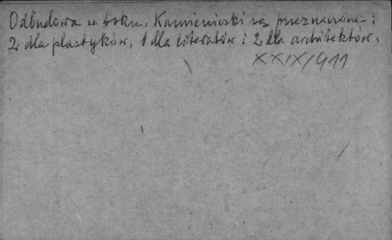 Odbudowa w toku. Kamieniczki są przeznaczone:
2 dla plastyków, 1 dla literatów i 2 dla architektów.
XXIX/411